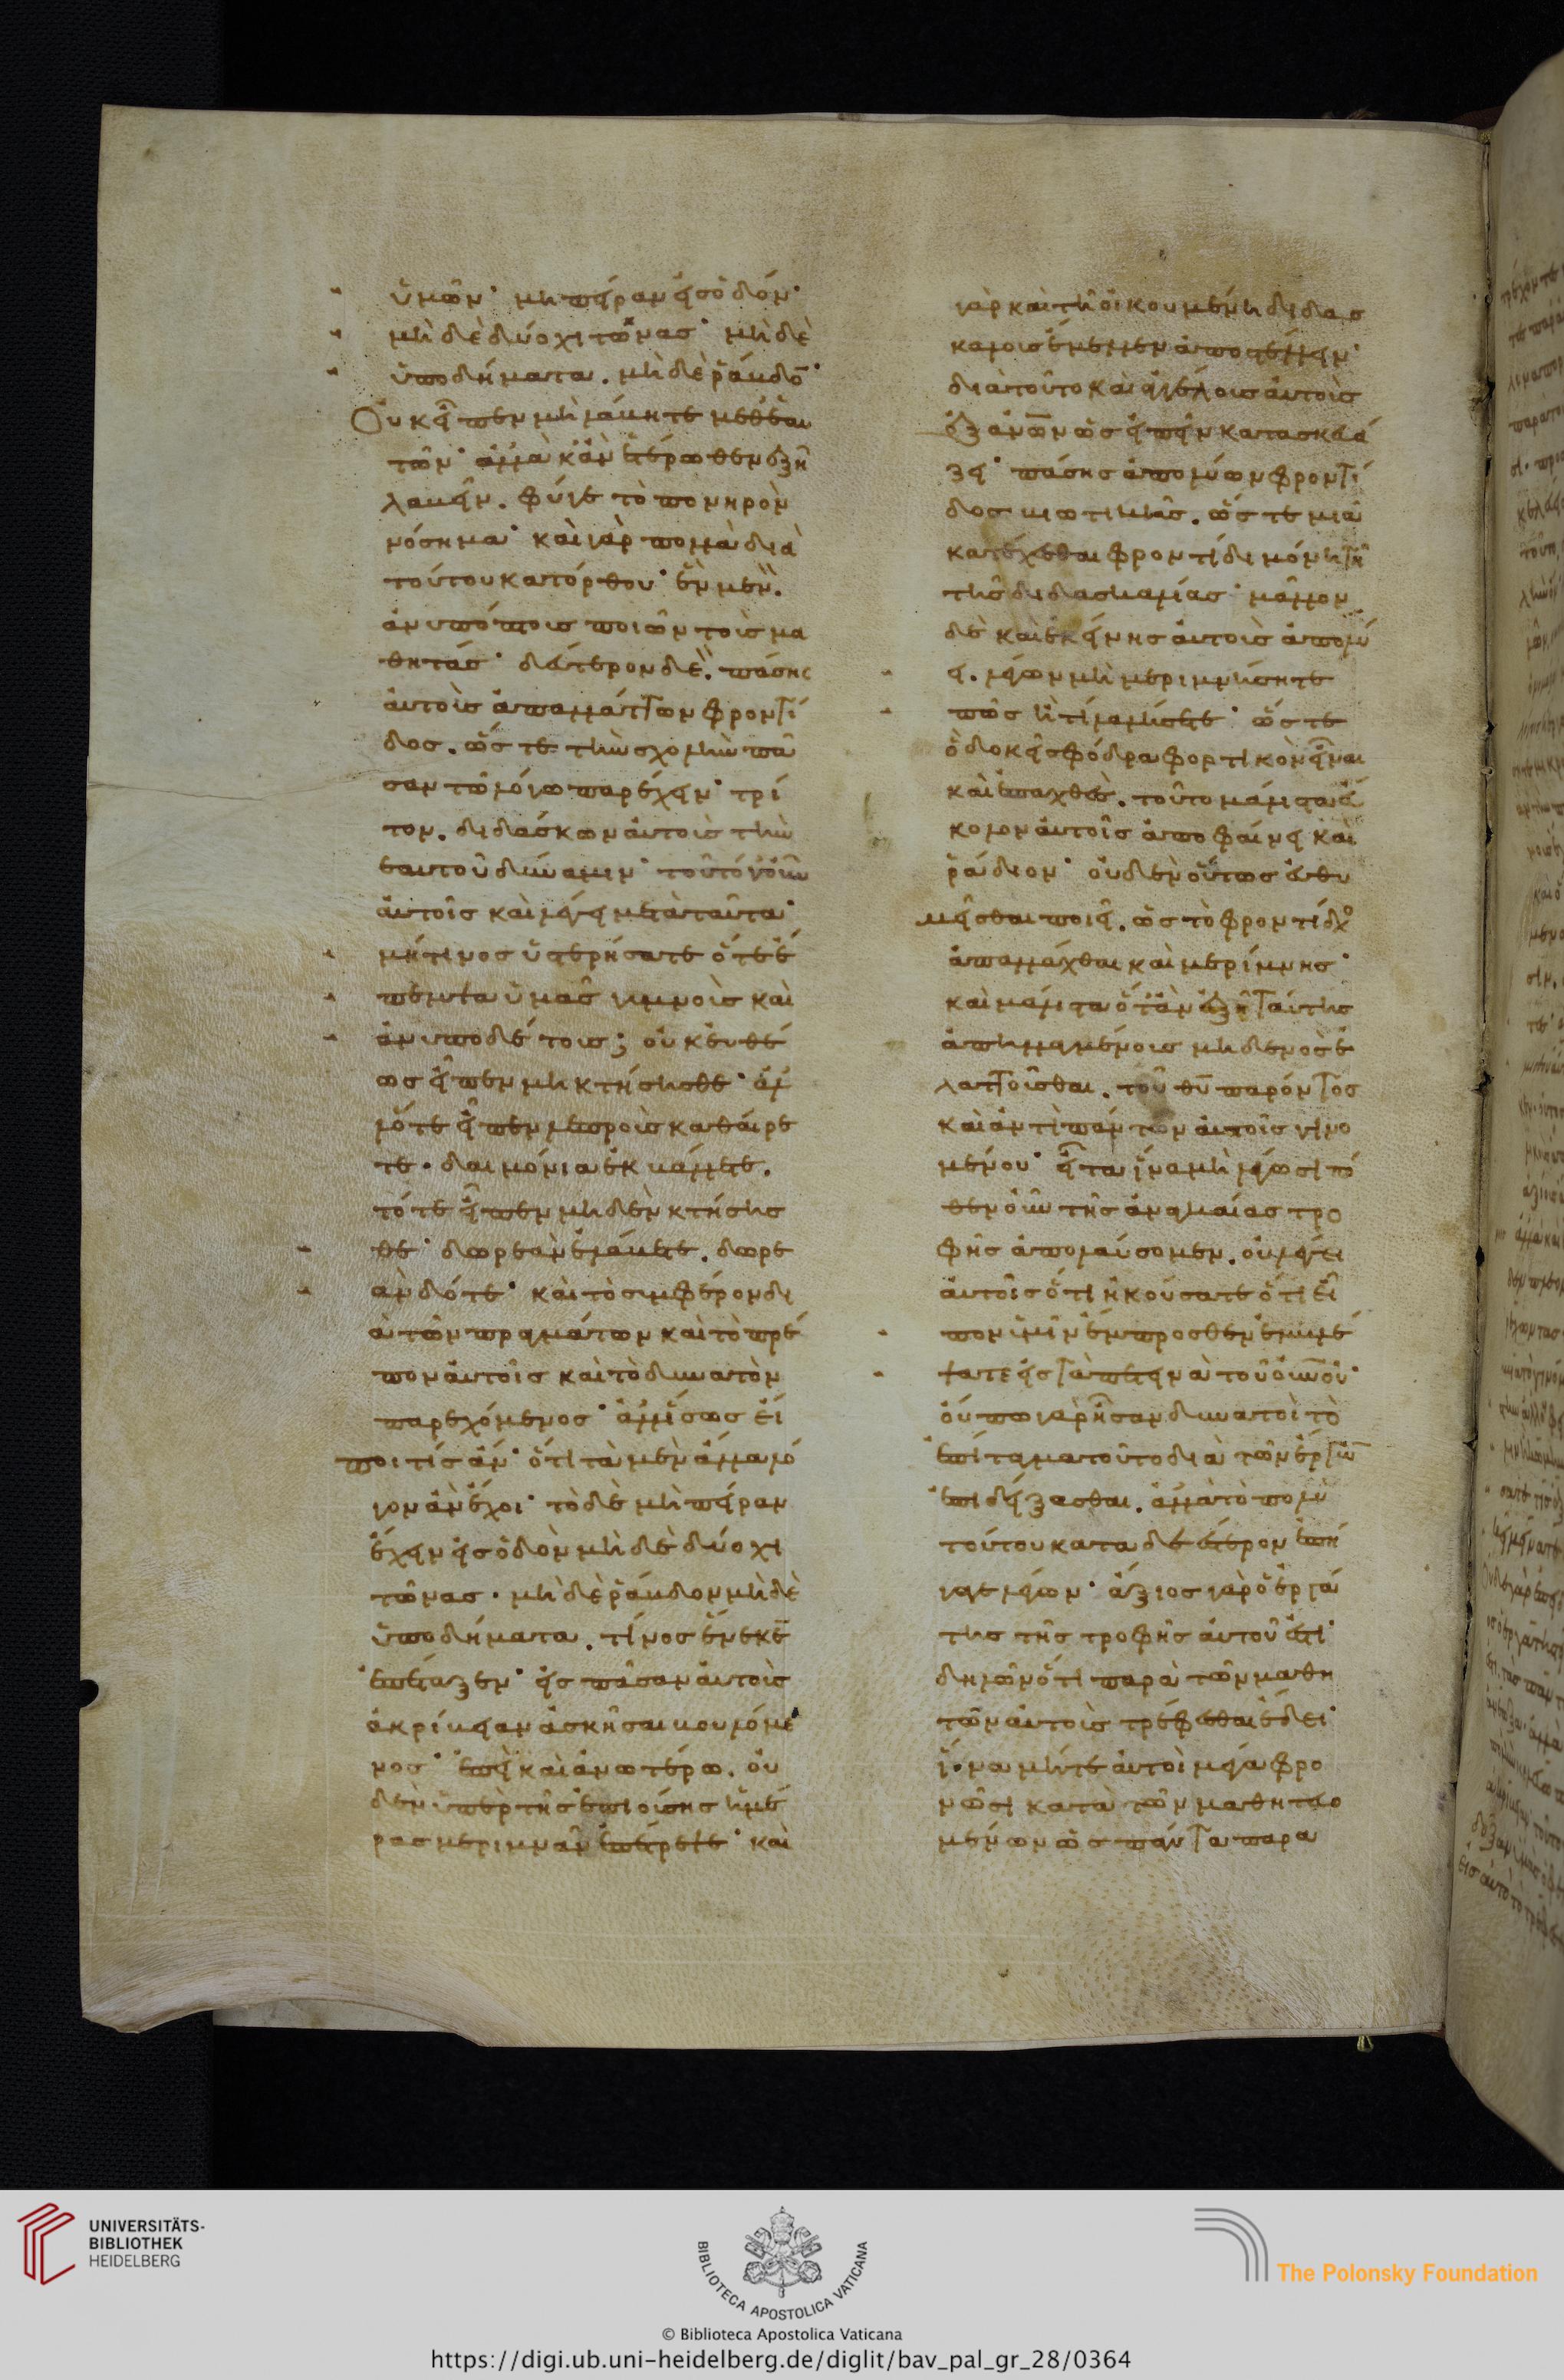 ὑμῶν· μὴ πήραν εἰς ὁδόν·
μὴ δὲ δύο χιτῶνας· μὴ δὲ
ὑποδήματα. μὴ δὲ ῥάβδο̄·
Οὐκ εἶπεν μὴ λάβητε μεθεαυ
τῶν· ἀλλὰ κἂν ἑτέρωθεν ἐξῆ
λαβεῖν. φύγε τὸ πονηρὸν
νόσημα· καὶ γὰρ πολλὰ διὰ
τούτου κατόρθου· ἓν μὲν.
ἀνυπόπτους ποιῶν τοὺς μα
θητάς· δεύτερον δὲ. πάσης
αὐτοὺς ἀπαλλάττων φροντί
δος. ὥστε τὴν σχολὴν πᾶ
σαν τῶ λόγω παρέχειν· τρί
τον. διδάσκων αὐτοὺς τὴν
ἑαυτοῦ δύναμιν· τοῦτο γοῦν
αὐτοῖς καὶ λέγει μετὰ ταῦτα·
μή τινος ὑστερήσατε ὅτε ἔ
πεμψα ὑμᾶς γυμνοὺς καὶ
ἀνυποδέτους; οὐκ εὐθέ
ως εἶπεν μὴ κτήσησθε· ἀλ
λ’ὅτε εἶπεν λεπροὺς καθαίρε
τε. δαιμόνια ἐκβάλλετε.
τότε εἶπεν μηδὲν κτήσης
θε· δωρεὰν ἐλάβετε. δωρε
ὰν δότε· καὶ τὸ συμφέρον δι
ὰ τῶν πραγμάτων καὶ τὸ πρέ
πον αὐτοῖς καὶ τὸ δυνατὸν
παρεχόμενος· ἀλλἴσως εἴ
ποι τίς ἄν· ὅτι τὰ μὲν ἄλλα λό
γον ἂν ἔχοι· τὸ δὲ μὴ πήραν
ἔχειν εἰς ὁδὸν μὴ δὲ δύο χι
τῶνας. μὴ δὲ ῥάβδον μὴ δὲ
ὑποδήματα. τίνος ἕνεκε̄
ἐπέταξεν· εἰς πᾶσαν αὐτοὺς
ἀκρίβειαν ἀσκῆσαι βουλόμε
νος· ἐπεὶ καὶ ἀνωτέρω. οὐ
δὲν ὑπὲρ τῆς ἐπιούσης ἡμέ
ρας μεριμνᾶν ἐπέτρεψε· καὶ
γὰρ καὶ τῆ οἰκουμένη διδας
κάλους ἔμελλεν ἀποστέλλειν·
διὰ τοῦτο καὶ ἀγγέλους αὐτοὺς
ἐξ ἀν̅ω̅ν ὡς εἰπεῖν κατασκευά
ζει· πάσης ἀπολύων φροντί
δος βιωτικῆς. ὥστε μιᾶ
κατέχεσθαι φροντίδι μόνη τῆ
τῆς διδασκαλίας· μᾶλλον
δὲ καὶ ἐκείνης αὐτοὺς ἀπολύ
ει. λέγων μὴ μεριμνήσητε
πῶς ἢ τί λαλήσετε· ὥστε
ὃ δοκεῖ σφόδρα φορτικὸν εἶναι
καὶ ἐπαχθὲς. τοῦτο μάλιστα εὔ
κολον αὐτοῖς ἀποφαίνει καὶ
ῥάδιον· οὐδὲν οὕτως εὐθυ
μεῖσθαι ποιεῖ. ὡς τὸ φροντίδο
ἀπαλλάχθαι καὶ μερίμνης·
καὶ μάλιστα ὅταν ἐξῆ ταύτης
ἀπηλλαγμένοις μηδενὸς ἐ
λαττοῦσθαι. τοῦ θ̅υ̅ παρόντος
καὶ ἀντὶ πάντων αὐτοῖς γινο
μένου· εἶτα ἵνα μὴ λέγωσι πό
θεν οὖν τῆς ἀναγκαίας τρο
φῆς ἀπολαύσομεν. οὐ λέγει
αὐτοῖς ὅτι ἠκούσατε ὅτι εἶ
πον ὑμῖν ἔμπροσθεν ἐμβλέ
ψατε εἰς τὰ πετεινὰ τοῦ ο̅υ̅ν̅ο̅υ̅·
οὔπω γὰρ ἦσαν δυνατοὶ τὸ
ἐπίταγμα τοῦτο διὰ τῶν ἔργω̄
ἐπιδείξασθαι. ἀλλὰ τὸ πολὺ
τούτου καταδεέστερον ἐπή
γαγε λέγων· ἄξιος γὰρ ὁ ἐργά
της τῆς τροφῆς αὐτοῦ ἐστι·
δηλῶν ὅτι παρὰ τῶν μαθη
τῶν αὐτοὺς τρέφεσθαι ἔδει·
ἵνα μήτε αὐτοὶ μέγα φρο
νῶσι κατὰ τῶν μαθητευο
μένων ὡς πάντα παρα
UNIVERSITÄTS-
BIBLIOTHEK
HEIDELBERG
BIBLIOTECA APOSTOLICA VATICANA
The Polonsky Foundation
© Biblioteca Apostolica Vaticana
https://digi.ub.uni-heidelberg.de/diglit/bav_pal_gr_28/0364